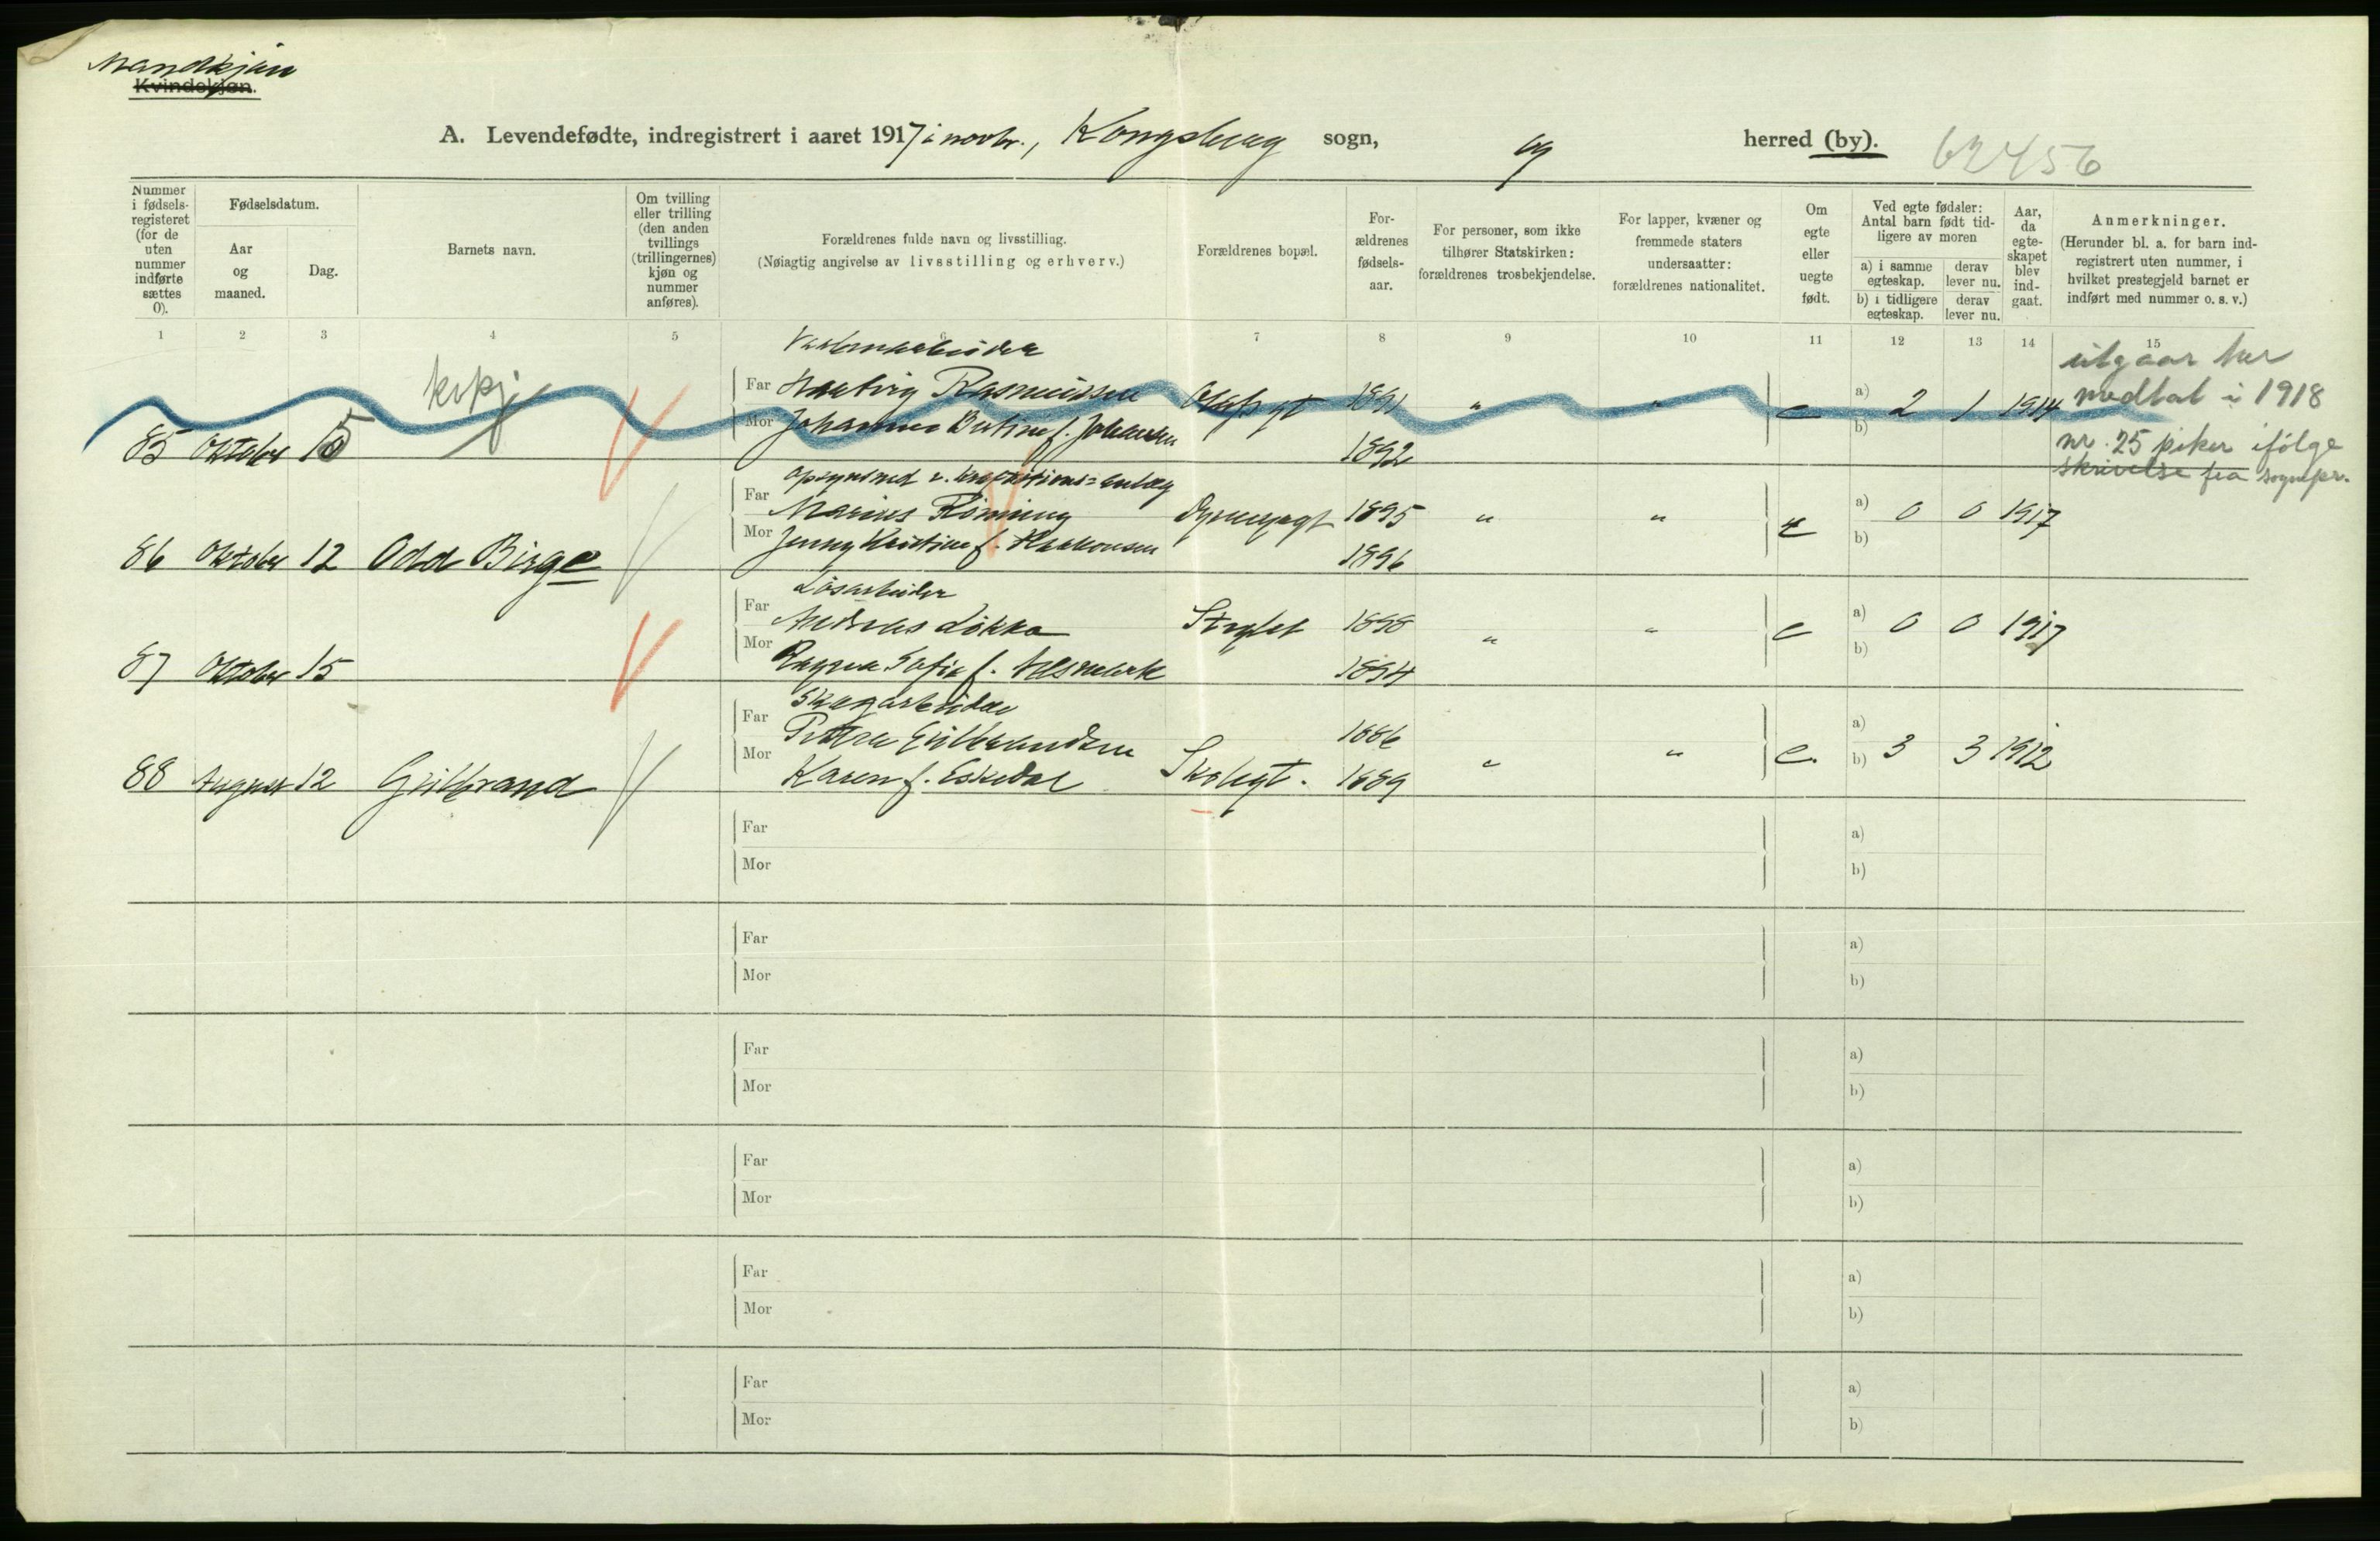 Mandkjøn
Kvindekjøn.
A. Levendefødte, indregistrert i aaret 1917 i novbr., Kongsberg sogn, by herred (by). 62456
Nummer i fødsels-registeret (for de uten nummer indførte sættes 0).
Fødselsdatum.
Aar og maaned.
Dag.
Barnets navn.
Om tvilling eller trilling (den anden tvillings (trillingernes) kjøn og nummer anføres).
Forældrenes fulde navn og livsstilling.
(Nøiagtig angivelse av livsstilling og erhverv.)
Forældrenes bopæl.
For-ældrenes fødsels-aar.
For personer, som ikke tilhører Statskirken: forældrenes trosbekjendelse.
For lapper, kvæner og fremmede staters undersaatter: forældrenes nationalitet.
Om egte eller uegte født.
Ved egte fødsler: Antal barn født tid-ligere av moren
a) i samme egteskap.
derav lever nu.
b) i tidligere egteskap.
derav lever nu.
Aar, da egte-skapet blev ind-gaat.
Anmerkninger.
(Herunder bl. a. for barn ind-registrert uten nummer, i hvilket prestegjeld barnet er indført med nummer o. s. v.)
1 2 3 4 5 6 7 8 9 10 11 12 13 14 15
kvkj
Far Rasmussen 1891 " " e a) 2 1 1914
Mor Johanne f. Johansen 1892 b)
85 Oktober 15
utgaar her
medtat i 1918
nr. 25 piker ifølge
skrivelse fra sognepr.
Far Marius Rønning 1895 " " e a) 0 0 1917
Mor Jenny Kristine f. Haakonsen 1896 b)
86 Oktober 12 Odd Birge
Løsarbeider
Far Andreas Løkka 1898 " " e a) 0 0 1917
Mor Sofie f. 1894 b)
87 Oktober 15
Skogarbeider
Far Petter Gulbrandsen 1886 " " e. a)
Mor Karen f. Eskedal Skolegt. 1889 b) 3 3 1912
88 August 12 Gulbrand
Far a)
Mor b)
Far a)
Mor b)
Far a)
Mor b)
Far a)
Mor b)
Far a)
Mor b)
Far a)
Mor b)